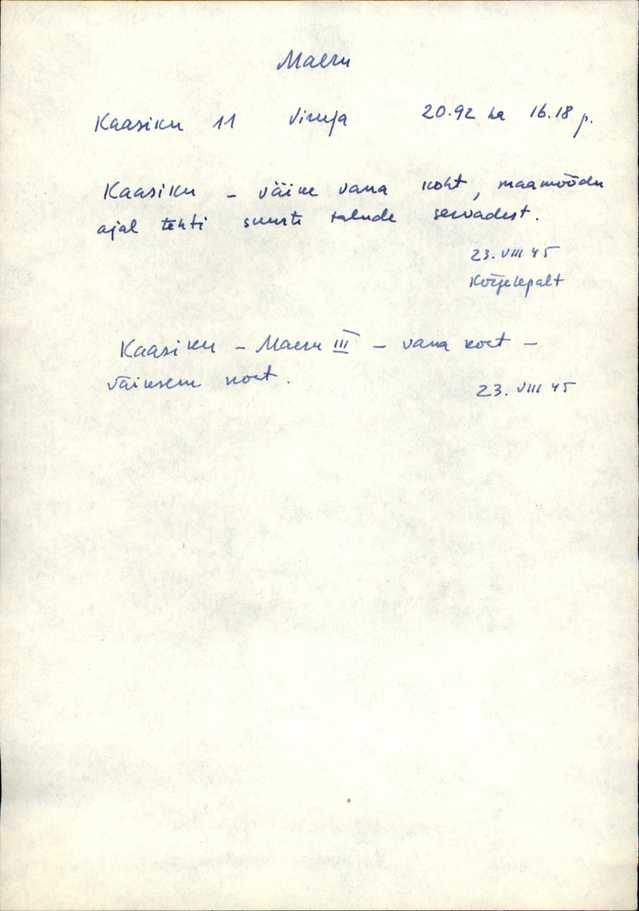 Maeru
Kaasiku 11 Viruja 20.92 ha 16.18 p.
Kaasiku - väike vana koht, maamõõdu
ajal tehti suurte talude servadest.
23. VIII 45
Kaasiku - Maeru III - vana koht -
väiksem koht.
23. VIII 45